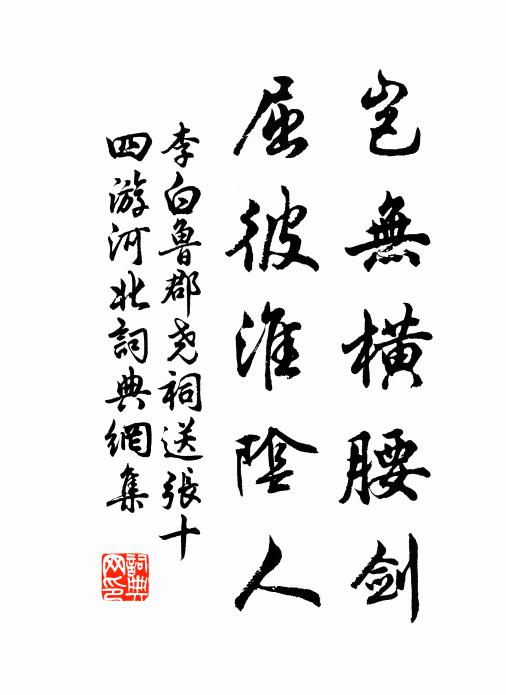 岂無横腰劍
屈彼淮陰人
李白魯郡尧祠送張十
四游河北詞典網集
詞典
网印